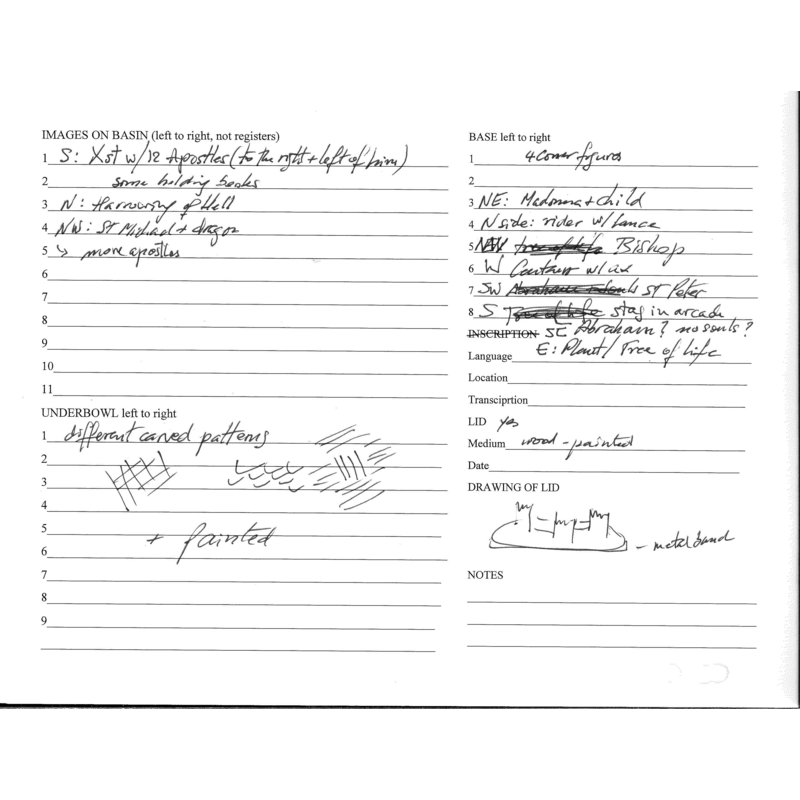 IMAGES ON BASIN (left to right, not registers)
1 S: Xst w/12 Apostles (to the right + left of him)
2 some holding books
3 N: Harrowing of Hell
4 NW: St Michael + dragon
5 ↳ more apostles
6
7
8
9
10
11
UNDERBOWL left to right
1 different carved patterns
2
3
4
5
+ painted
6
7
8
9
BASE left to right
1 4 corner figures
2
3 NE: Madonna + child
4 N side: rider w/ lance
5 NW tree of life Bishop
6 W Centaur w/
7 SW Abraham St Peter
8 S Tree of life stag in arcade
INSCRIPTION SE Abraham? no souls?
E: Plant/Tree of life
Language
Location
Transciprtion
LID yes
Medium wood - painted
Date
DRAWING OF LID
- metal band
NOTES